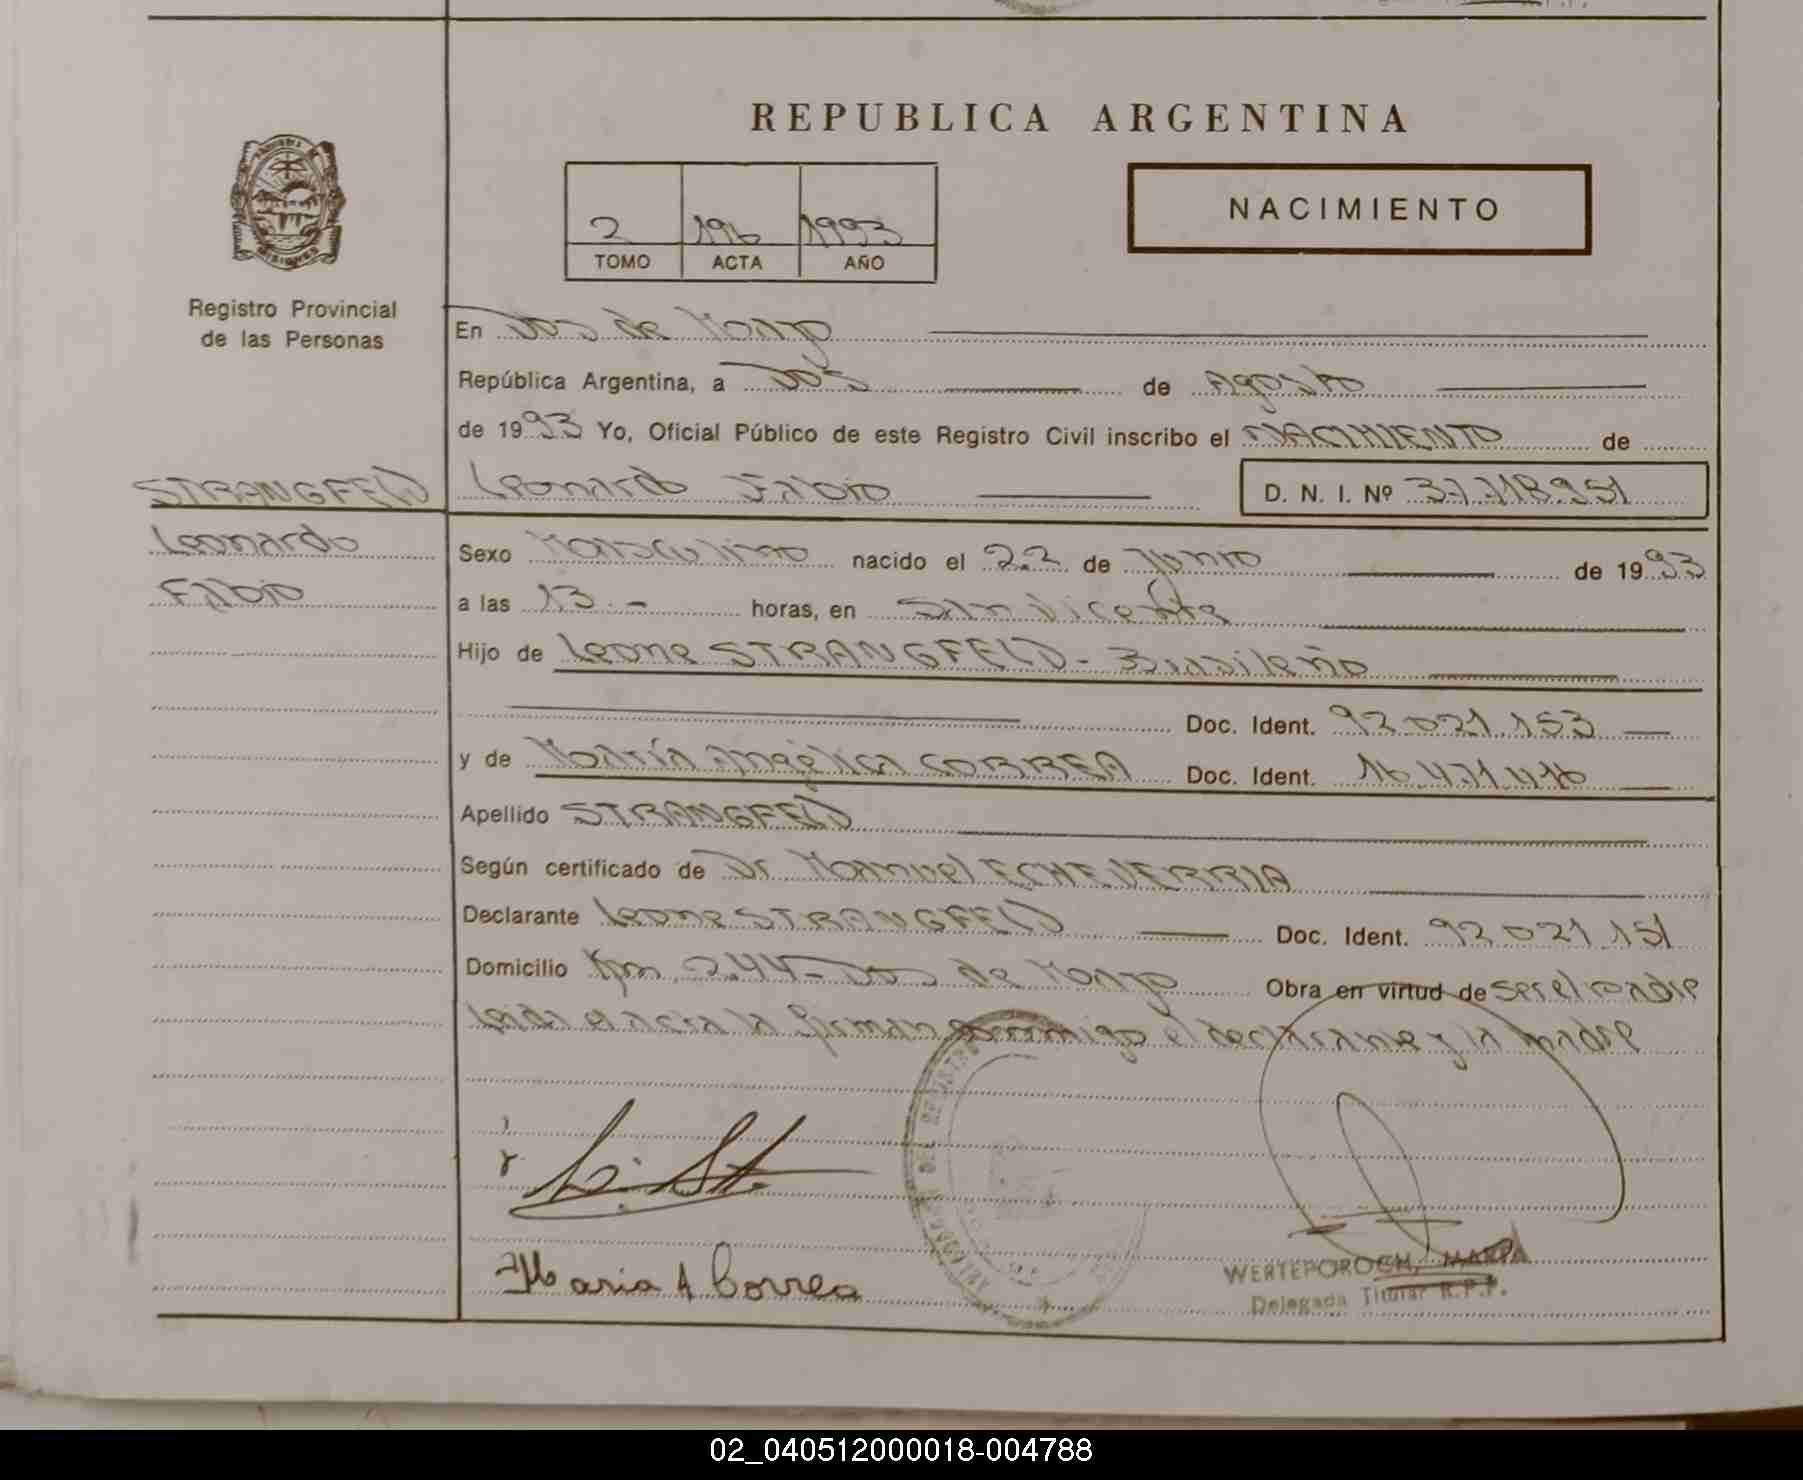 REPUBLICA ARGENTINA
NACIMIENTO
2 196 1993
TOMO ACTA AÑO
Registro Provincial
de las Personas
En Dos de Mayo
República Argentina, a Dos de Agosto
de 1993 Yo, Oficial Público de este Registro Civil inscribo el NACIMIENTO de
STRANGFELD Leonardo Fabio D. N. I. Nº 37.718.951
Leonardo
Fabio
Sexo Masculino nacido el 22 de Junio de 1993
a las 13.- horas, en San Vicente
Hijo de Leone STRANGFELD - Brasileño
Doc. Ident. 92.021.153
y de María Angélica CORREA Doc. Ident. 16.471.416
Apellido STRANGFELD
Según certificado de Dr Manuel ECHEVERRIA
Declarante Leone STRANGFELD Doc. Ident. 92.021.151
Domicilio Km 244 - Dos de Mayo Obra en virtud de ser el padre
Leida el acta la firman conmigo el declarante y la madre
Maria A Correa
WERTEPOROCH, MARTA
Delegada Titular R.P.P.
02_040512000018-004788